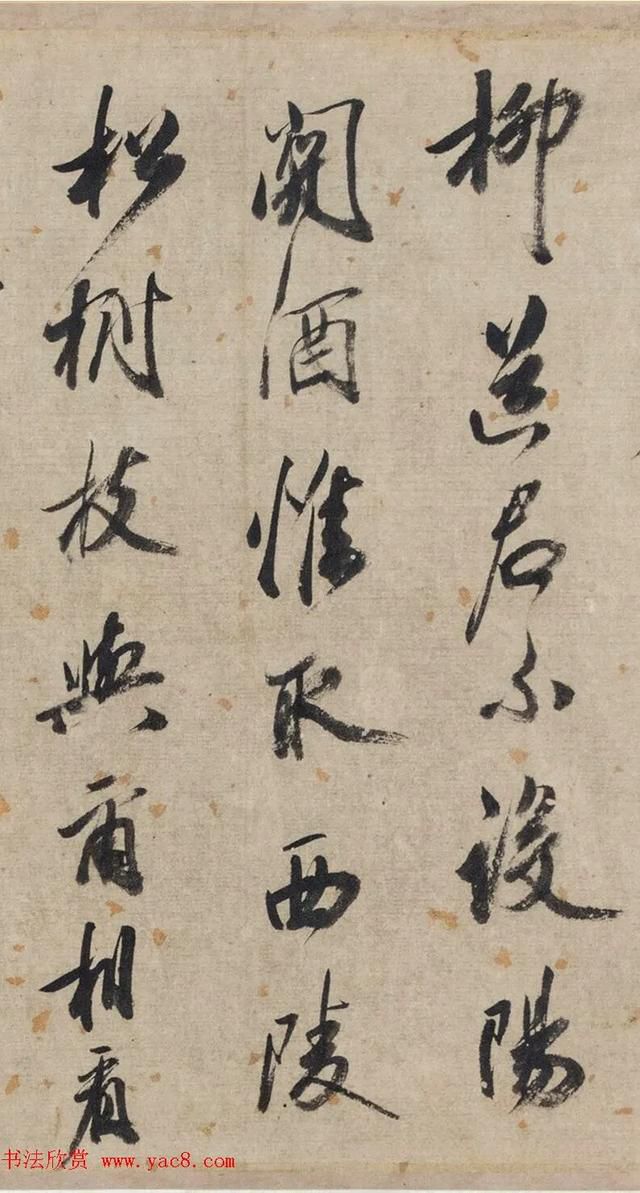 柳送君不設陽
關酒惟取西陵
松樹枝與爾相看
书法欣赏 www.yac8.com